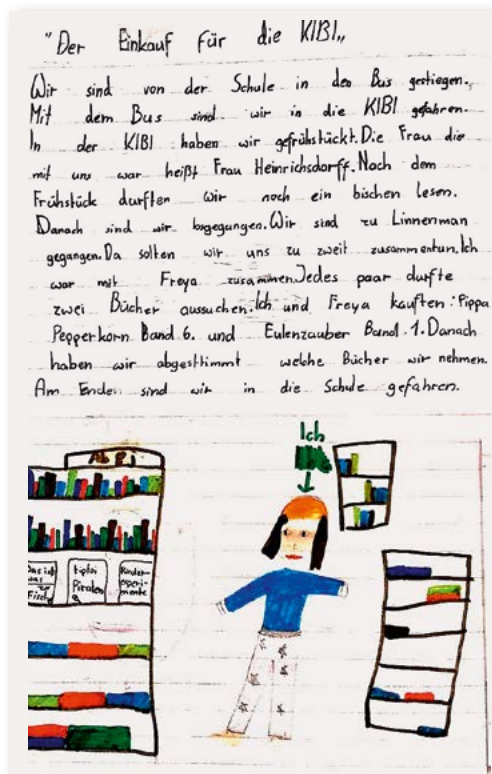 "Der Einkauf für die KIBI„
Wir sind von der Schule in den Bus gestiegen.
Mit dem Bus sind wir in die KIBI gefahren.
In der KIBI haben wir gefrühstückt. Die Frau die
mit uns war heißt Frau Heinrichsdorff. Nach dem
Frühstück durften wir noch ein bischen lesen.
Danach sind wir losgegangen. Wir sind zu Linnenman
gegangen. Da solten wir uns zu zweit zusammentun. Ich
war mit Freya zusammen. Jedes paar durfte
zwei Bücher aussuchen. Ich und Freya kauften: Pippa
Pepperkorn Band 6. und Eulenzauber Band 1. Danach
haben wir abgestimmt welche Bücher wir nehmen.
Am Enden sind wir in die Schule gefahren.
Ich
Ab 8 j
Das ist
was
Fisch
tiptoi
Piraten
Kinder-
experi-
mente